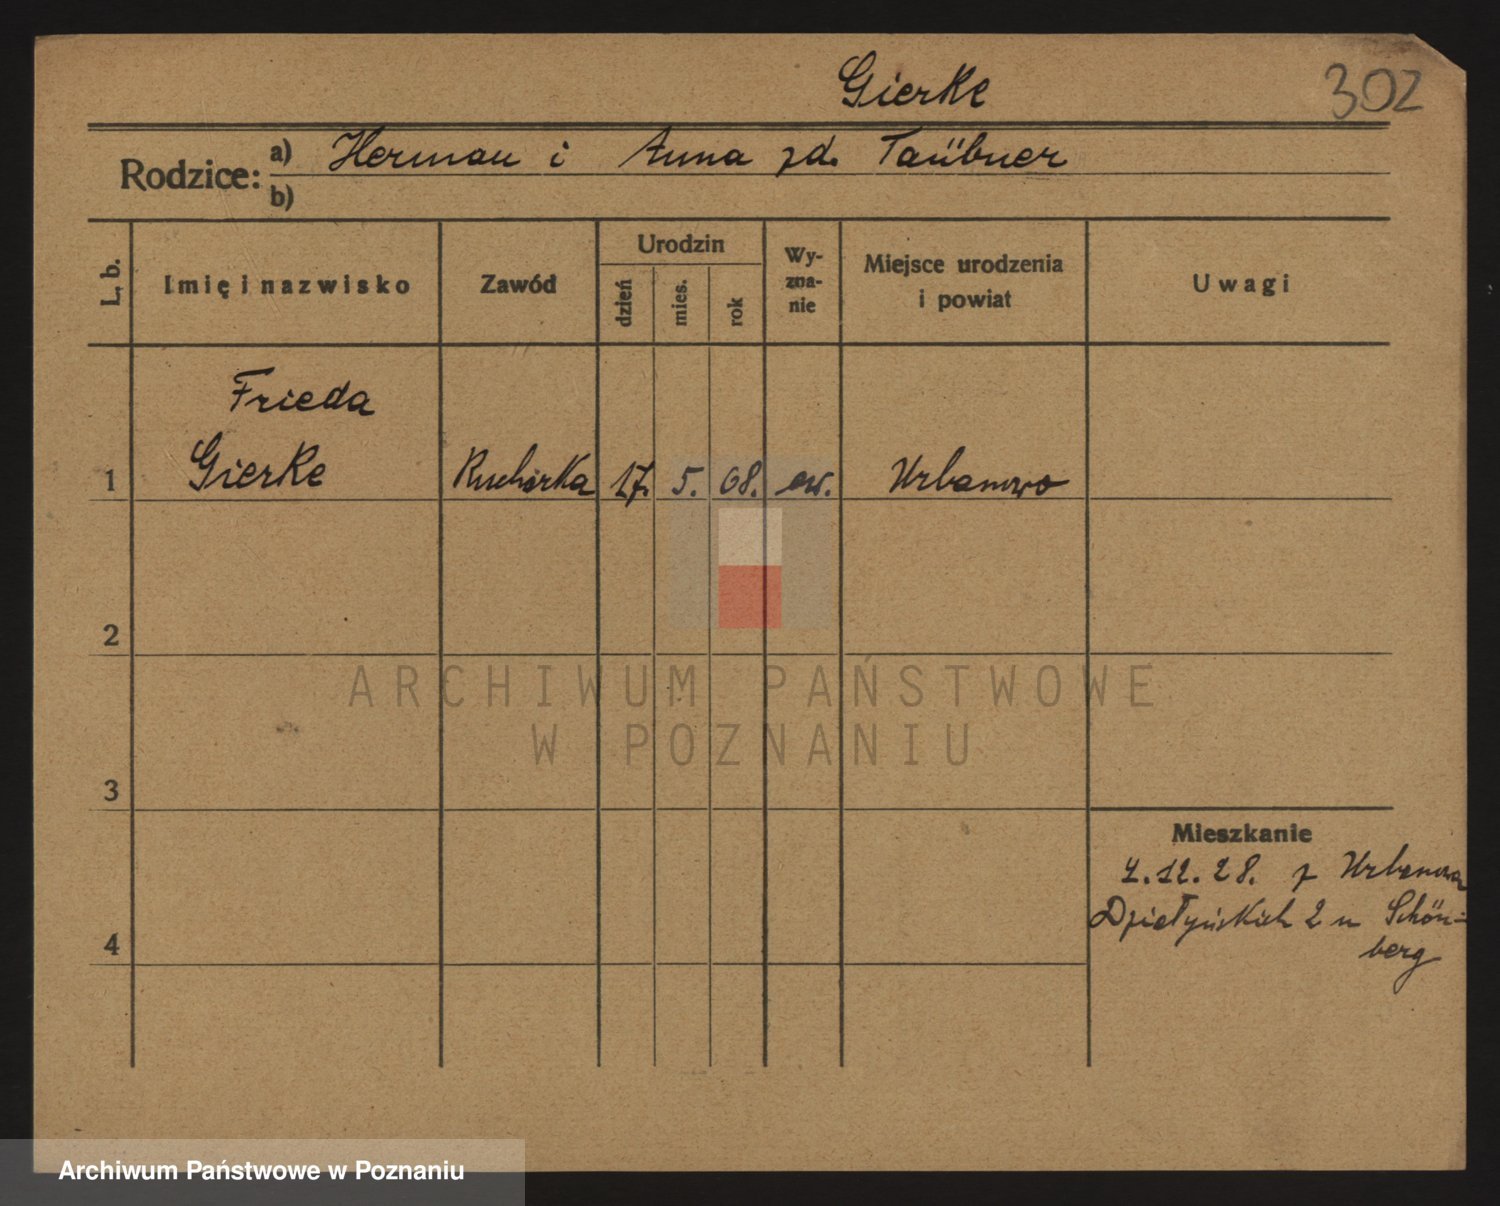 Gierke
302
Rodzice: a) Herman i Anna zd. Taübner
b)
L. b.
Imię i nazwisko
Zawód
Urodzin
dzień
mies.
rok
Wy-
zna-
nie
Miejsce urodzenia
i powiat
Uwagi
Frieda
1 Gierke Kucharka 17. 5. 08. ew. Urbanowo
2
3
4
Mieszkanie
4.12.28. z Urbanowa
Działyńskich 2 u Schön-
berg
ARCHIWUM PAŃSTWOWE
W POZNANIU
Archiwum Państwowe w Poznaniu